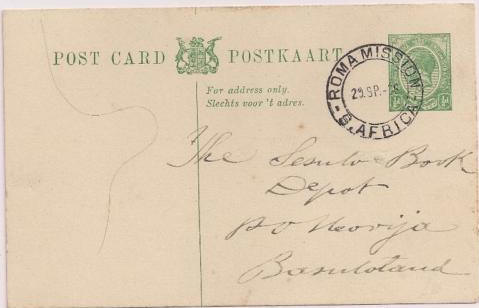 POST CARD POSTKAART
For address only.
Slechts voor 't adres.
ROMA MISSION
29.SP.
S. AFRICA
½d ½d
The Sesuto Book
Depot
P O Morija
Basutoland